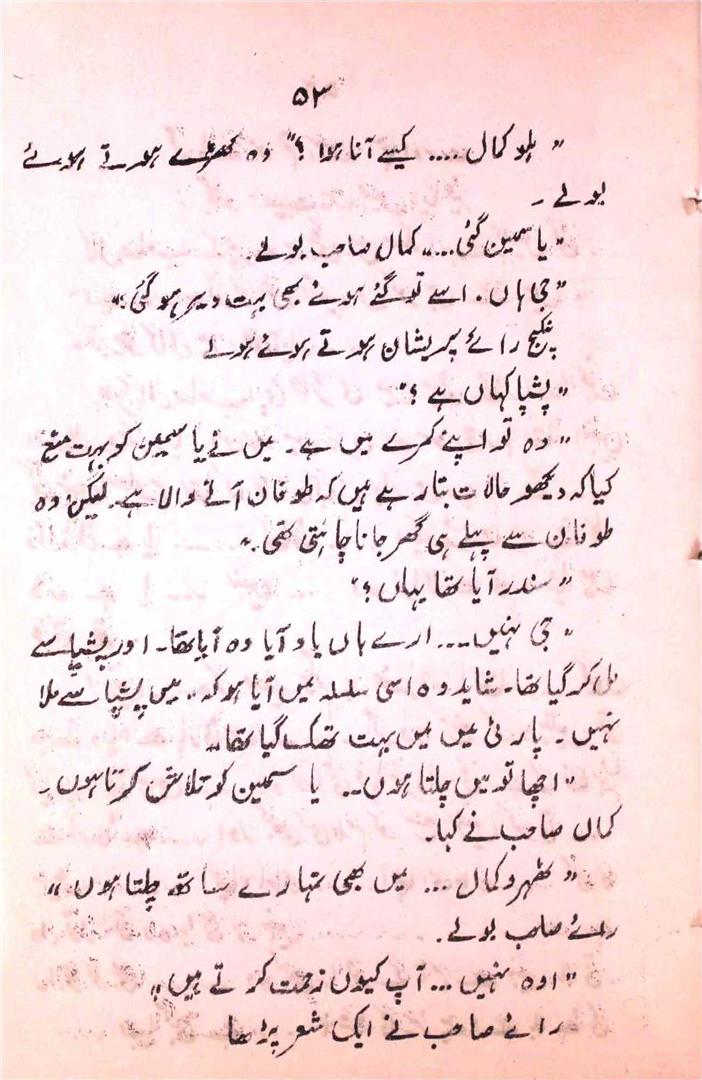 ۵۳
"ہلو کمال .... کیسے آنا ہوا ؟" وہ کھڑے ہوتے ہوئے
بولے ۔
"یاسمین گئی .... کمال صاحب بولے۔
"جی ہاں ۔ اسے تو گئے ہوئے بھی بہت دیر ہو گئی ؛"
پنکج رائے پریشان ہوتے ہوئے بولے
"پشپا کہاں ہے ؟"
"وہ تو اپنے کمرے میں ہے ۔ میں نے یاسمین کو بہت منع
کیا کہ دیکھو حالات بتا رہے ہیں کہ طوفان آنے والا ہے ۔ لیکن وہ
طوفان سے پہلے ہی گھر جانا چاہتی تھی ۔"
"سندر آیا تھا یہاں ؟"
"جی نہیں ... ارے ہاں یاد آیا وہ آیا تھا ۔ اور پشپا سے
مل کر گیا تھا ۔ شاید وہ اسی سلسلہ میں آیا ہو کہ .. میں پشپا سے ملا
نہیں ۔ پارٹی میں میں بہت تھک گیا تھا ۔"
"اچھا تو میں چلتا ہوں .. یاسمین کو تلاش کرتا ہوں ۔
کمال صاحب نے کہا ۔
"ٹھہرو کمال ... میں بھی تمہارے ساتھ چلتا ہوں "
رائے صاحب بولے ۔
"اوہ نہیں ... آپ کیوں زحمت کرتے ہیں"
رائے صاحب نے ایک شعر پڑھا